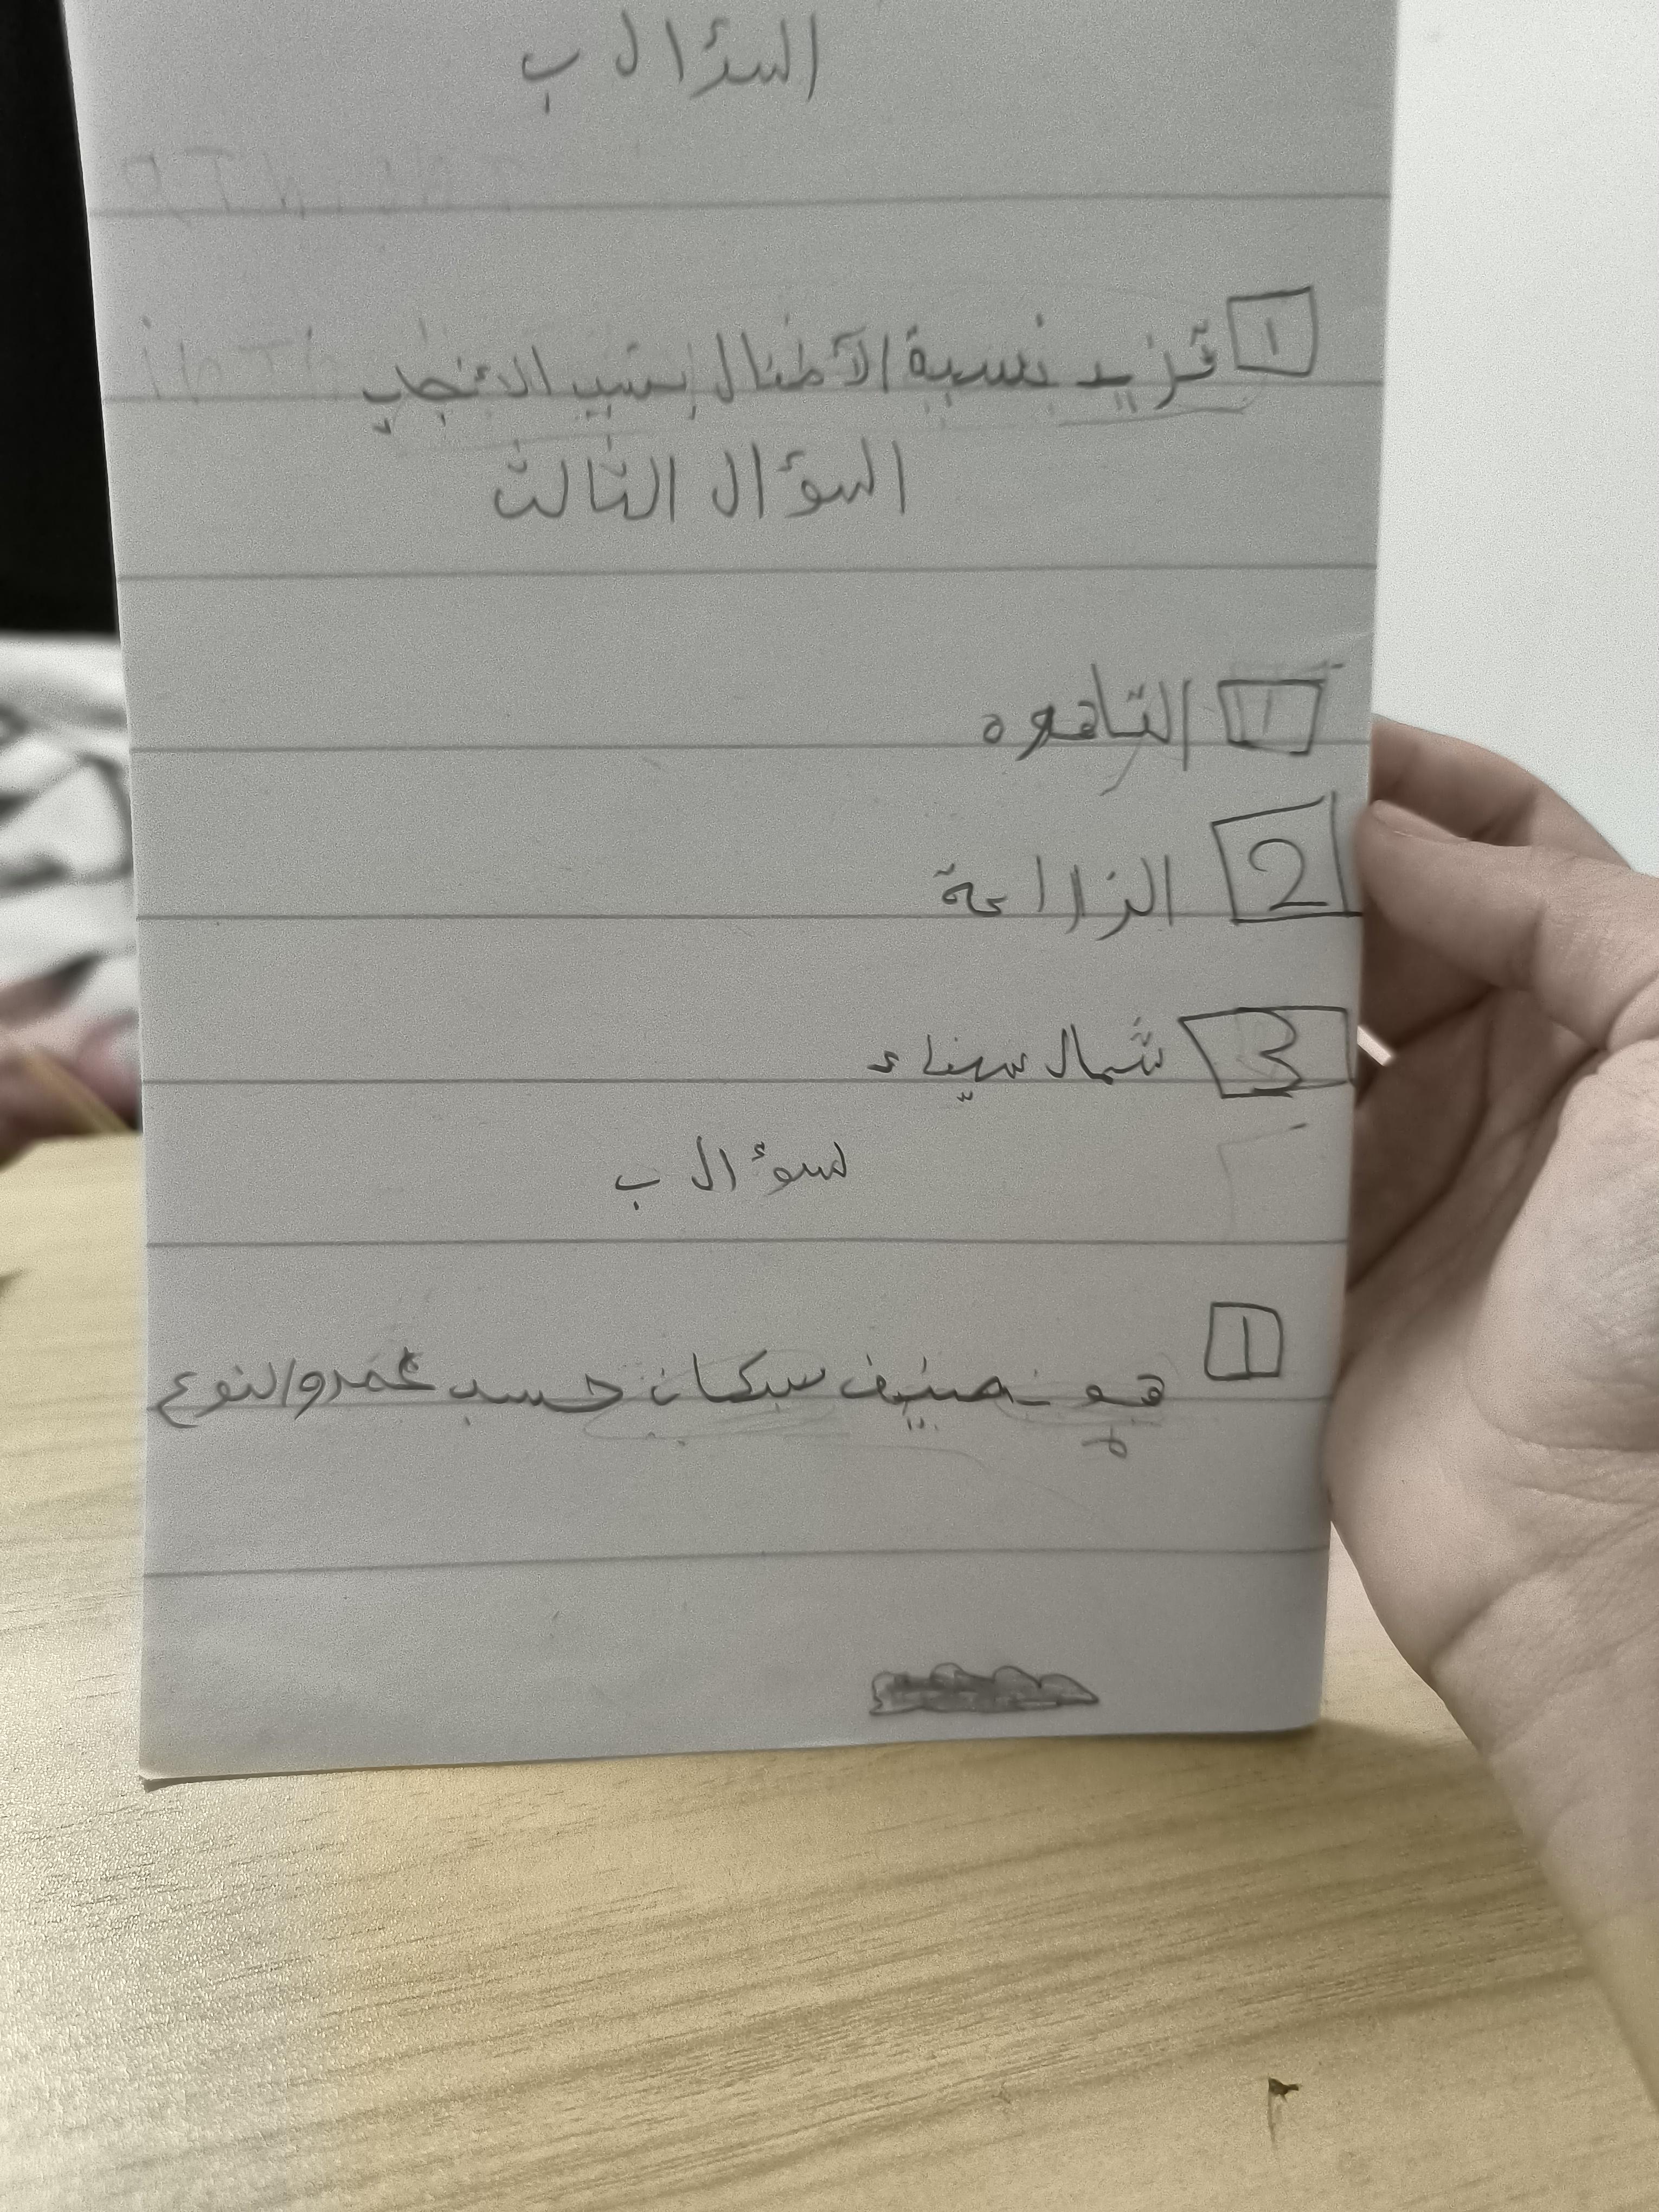 السؤال ب
1 تزيد نسبة الأطفال بسبب الائنجاب
السؤال الثالث
1 القاهره
2 الزراعة
3 شمال سيناء
سوءال ب
1 هو تصنيف سكان حسب عمرو النوع